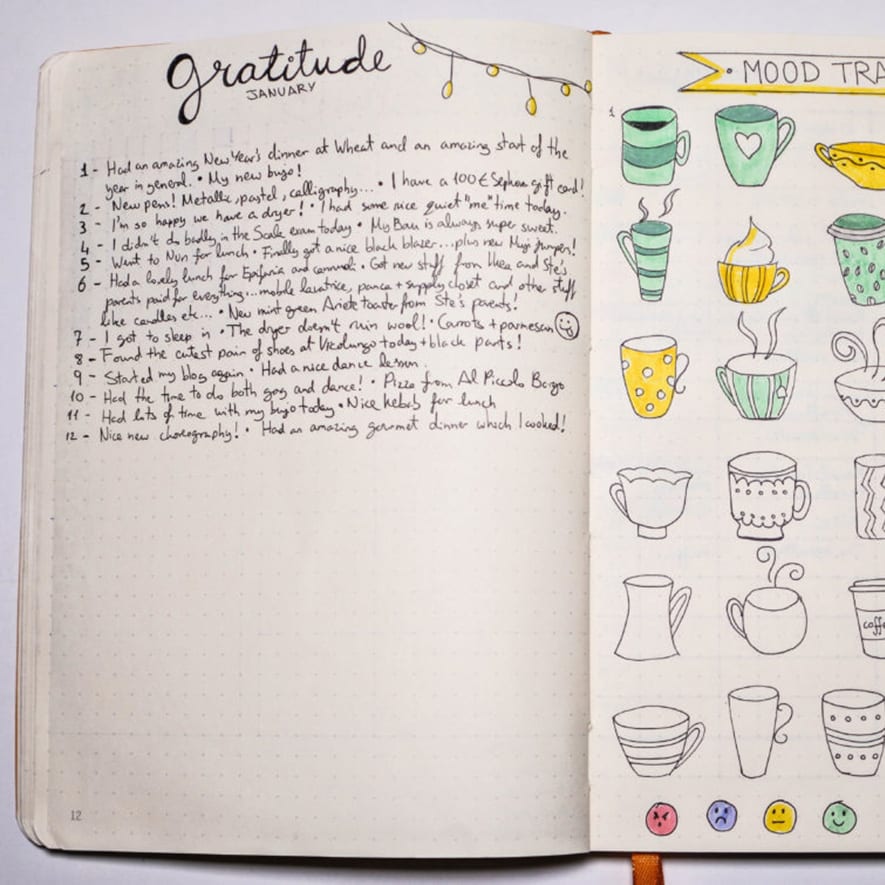 gratitude
JANUARY
1 - Had an amazing New Year's dinner at Wheat and an amazing start of the
year in general. • My new bujo!
2 - New pens! Metallic, pastel, calligraphy... • I have a 100€ Sephora gift card!
3 - I'm so happy we have a dryer! • I had some nice quiet "me" time today.
4 - I didn't do badly in the Scale exam today • My Bau is always super sweet.
5 - Went to Nun for lunch • Finally got a nice black blazer... plus new Muji jumper!
6 - Had a lovely lunch for Epifania and • Got new stuff from Ikea and Ste's
parents paid for everything... mobile lavatrice, panca + supply closet and other stuff
like candles etc... • New mint green Ariete toaster from Ste's parents!
7 - I got to sleep in • The dryer doesn't ruin wool! • Carrots + parmesan
8 - Found the cutest pair of shoes at Vicolungo today + black pants!
9 - Started my blog again • Had a nice dance lesson.
10 - Had the time to do both gag and dance! • Pizza from Al Piccolo Borgo
11 - Had lots of time with my bujo today • Nice kebab for lunch
12 - Nice new choreography! • Had an amazing gourmet dinner which I cooked!
12
• MOOD TRA
1
coffe